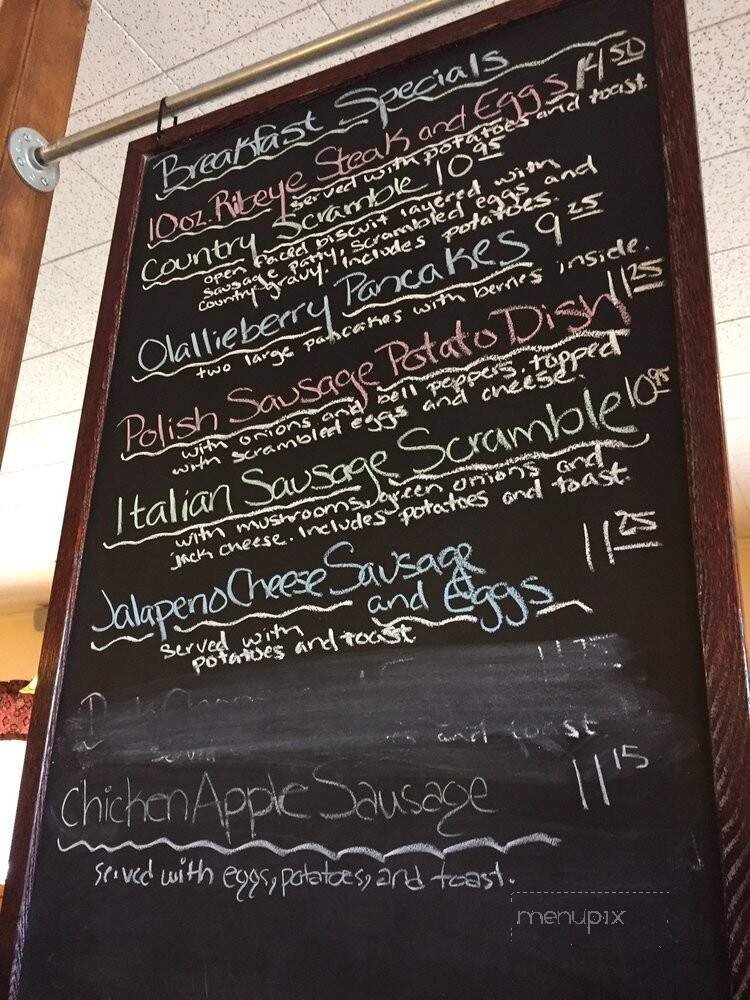 Breakfast Specials
10oz. Ribeye Steak and Eggs 14.50
served with potatoes and toast
Country Scramble 10.95
open faced biscuit layered with
sausage patty, scrambled eggs and
country gravy. Includes potatoes.
Olallieberry Pancakes 9 25
two large pancakes with berries inside.
Polish Sausage Potato Dish 11 25
with onions and bell peppers, topped
with scrambled eggs and cheese.
Italian Sausage Scramble 10.95
with mushrooms, green onions and
jack cheese. Includes potatoes and toast.
Jalapeno Cheese Sausage 11 25
and Eggs
served with
potatoes and toast
11.75
served and toast
Chicken Apple Sausage 11 15
served with eggs, potatoes, and toast.
menupix